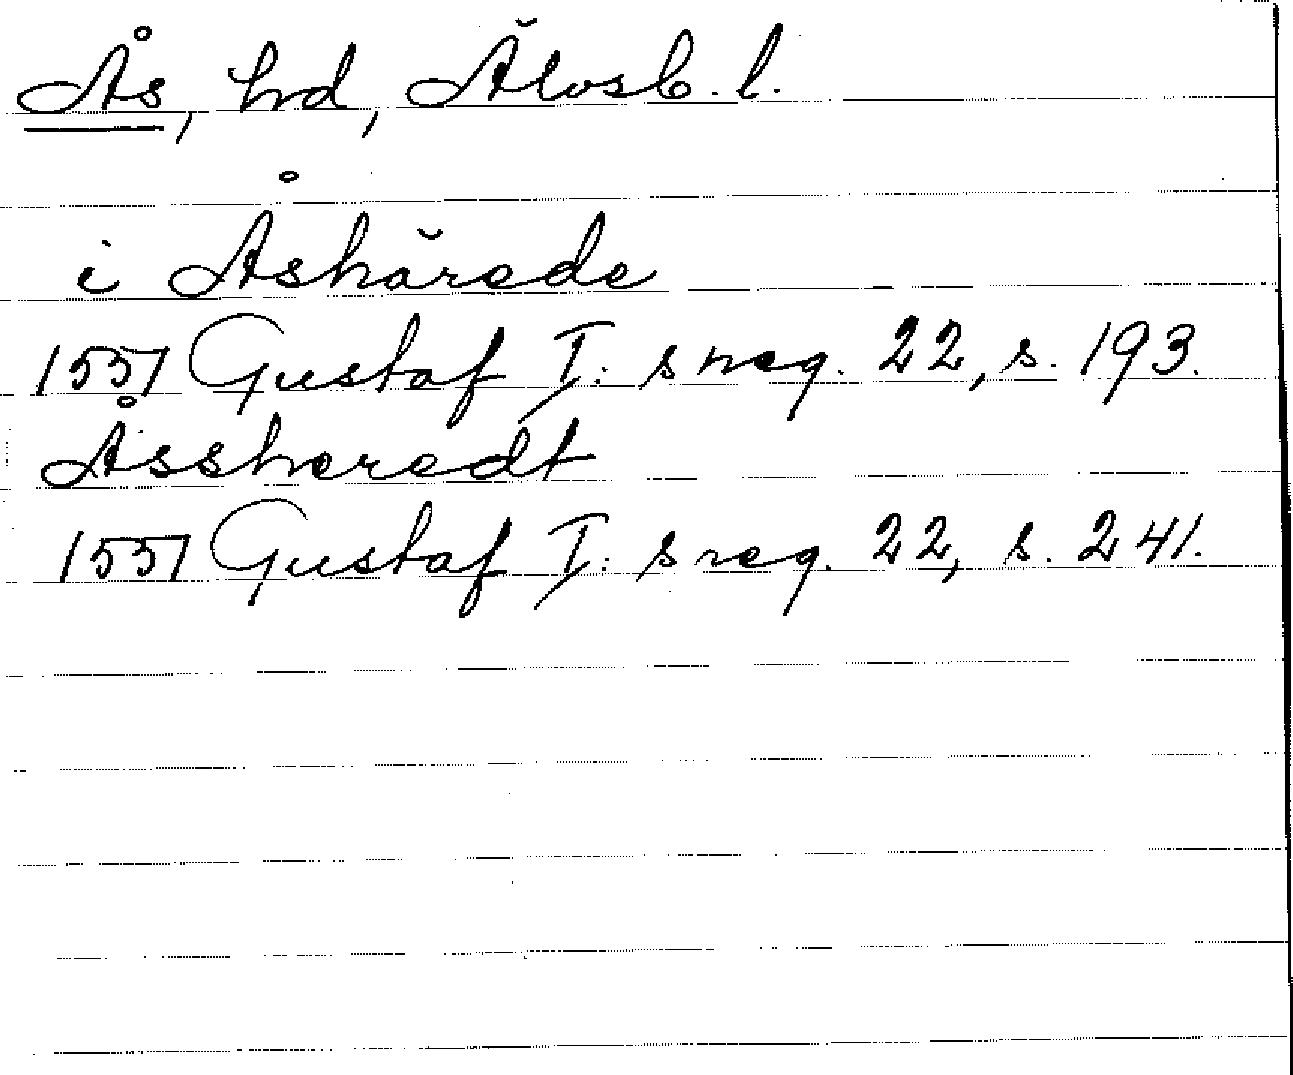 Ås, hd, Älvsb. l.
i Åshärede
1551 Gustaf I: s reg. 22, s. 193.
Åssheredt
1551 Gustaf I: s reg. 22, s. 241.